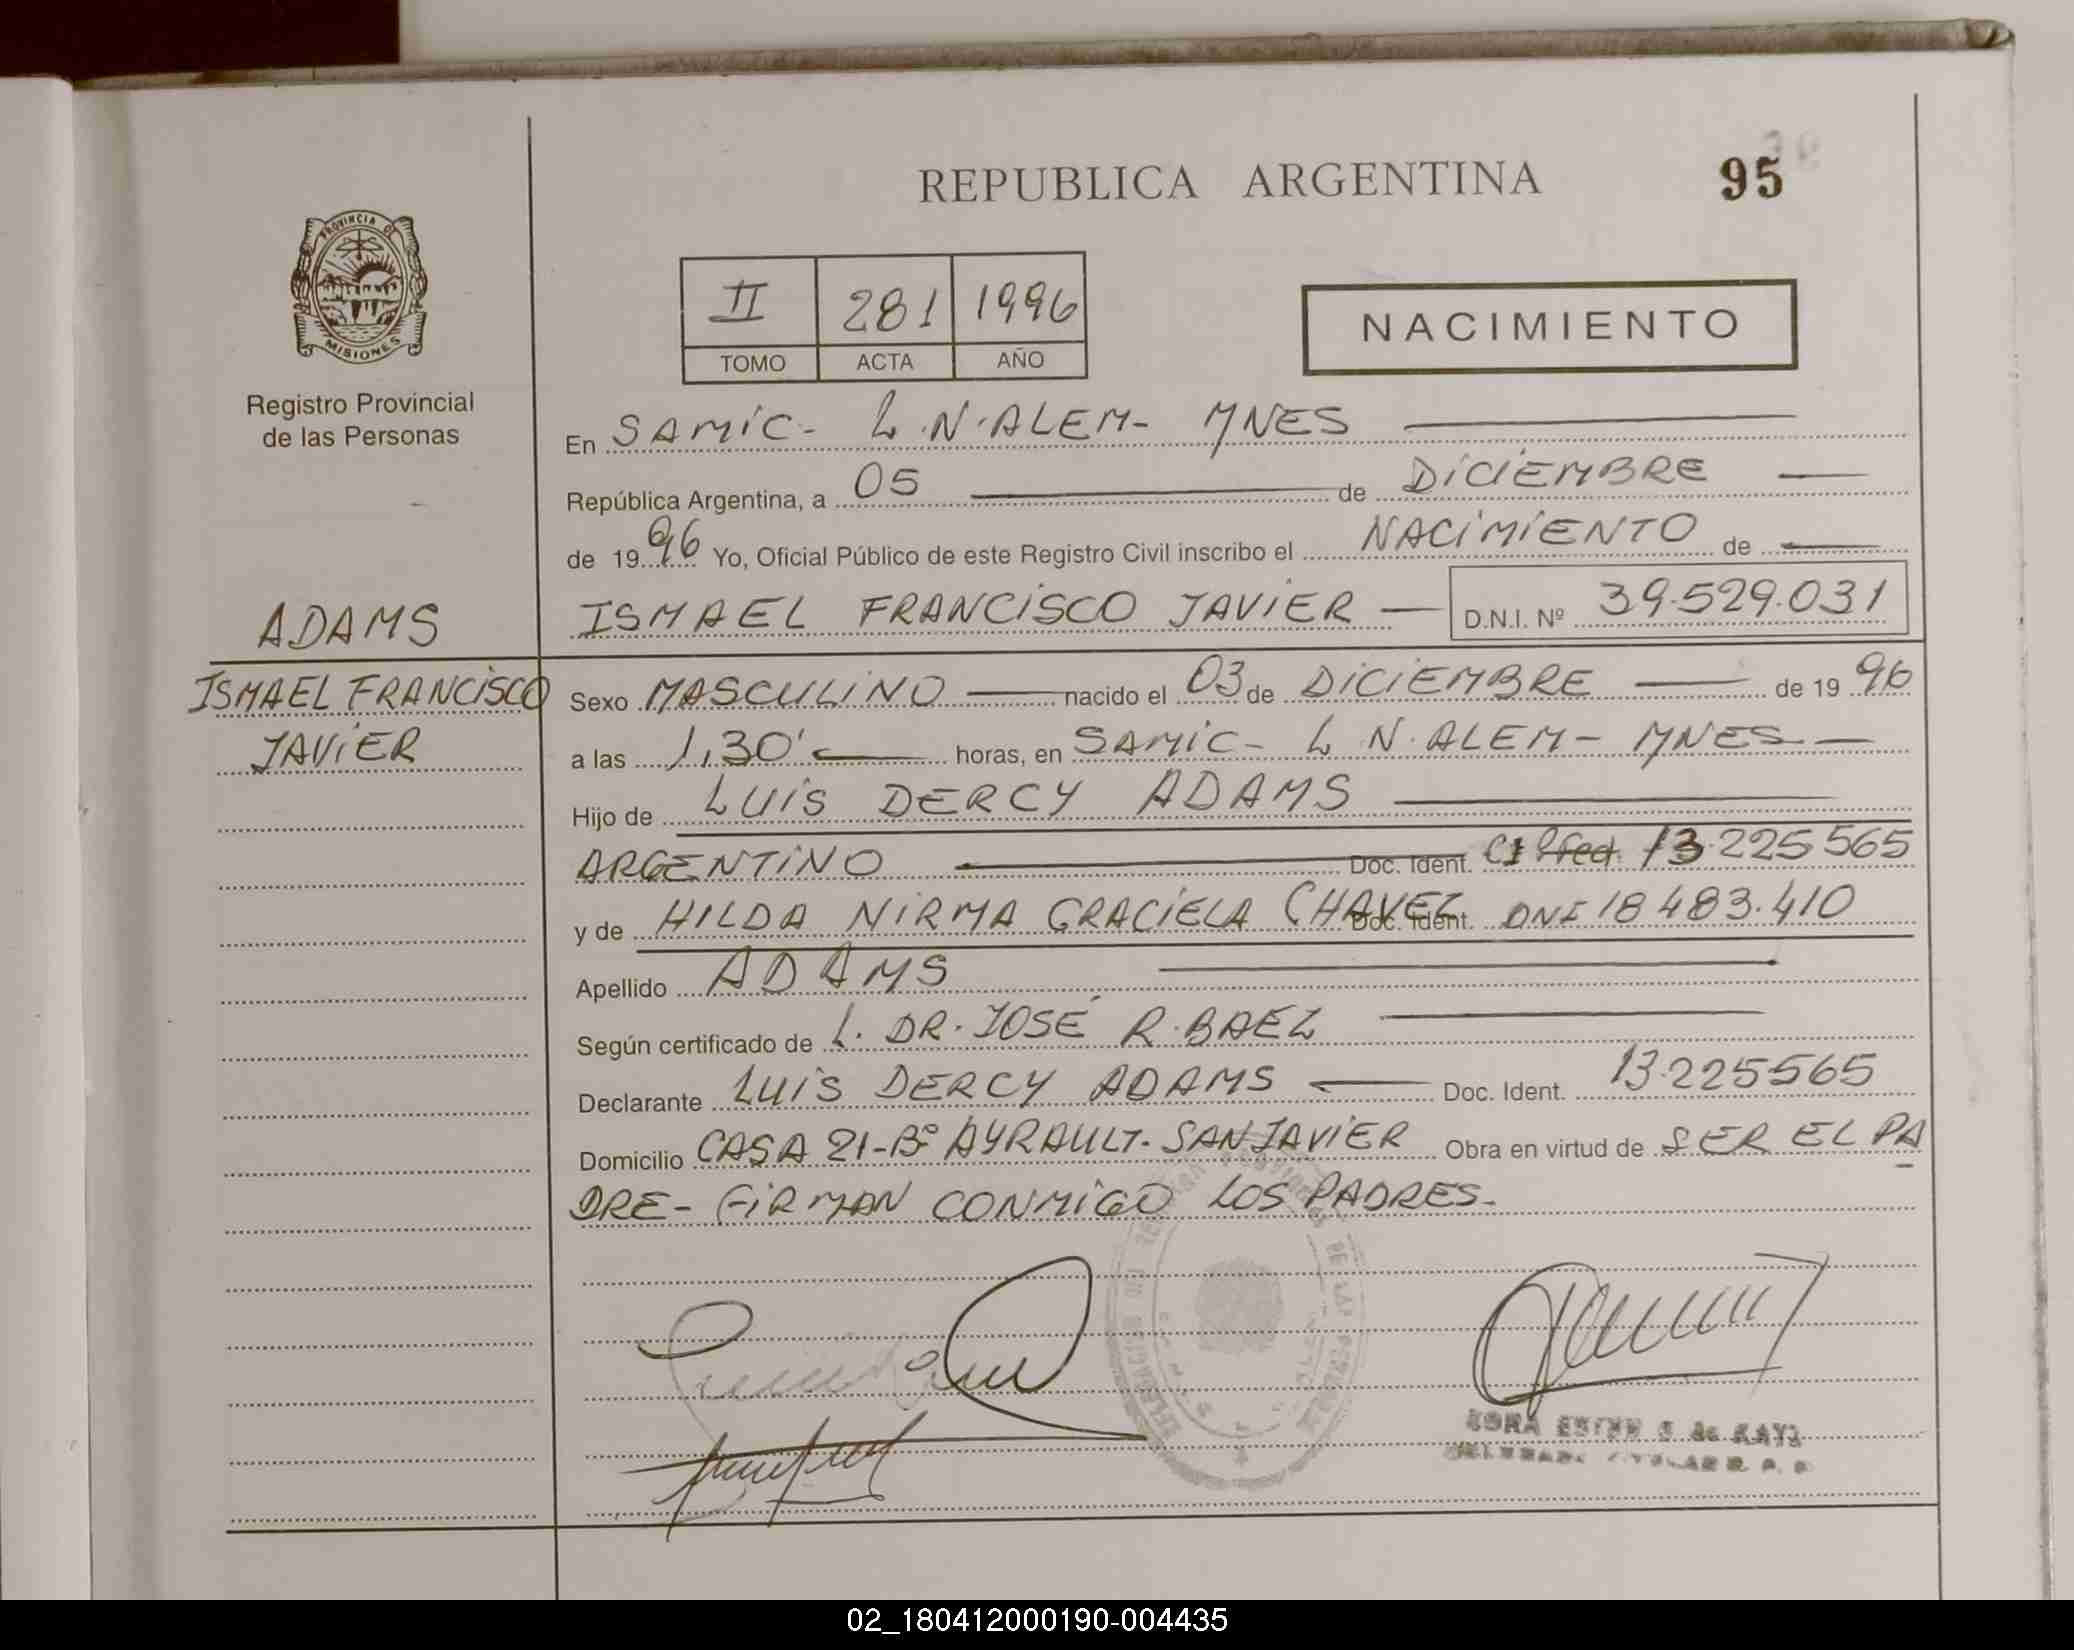 REPUBLICA ARGENTINA
95
PROVINCIA DE
MISIONES
Registro Provincial
de las Personas
II 281 1996
TOMO ACTA AÑO
NACIMIENTO
En SAMIC- L.N.ALEM- MNES
República Argentina, a 05 de DICIEMBRE
de 1996 Yo, Oficial Público de este Registro Civil inscribo el NACIMIENTO de
ISMAEL FRANCISCO JAVIER D.N.I. Nº 39.529.031
ADAMS
ISMAEL FRANCISCO
JAVIER
Sexo MASCULINO nacido el 03 de DICIEMBRE de 1996
a las 1,30' horas, en SAMIC- L N. ALEM- MNES
Hijo de LUIS DERCY ADAMS
ARGENTINO Doc. Ident. 13.225565
y de HILDA NIRMA GRACIELA CHAVEZ Doc. Ident. DNI 18483.410
Apellido ADAMS
Según certificado de L. DR. JOSÉ R. BAEZ
Declarante LUIS DERCY ADAMS Doc. Ident. 13.225565
Domicilio CASA 21-Bº AYRAULT- SAN JAVIER Obra en virtud de SER EL PA
DRE- FIRMAN CONMIGO LOS PADRES-
02_180412000190-004435